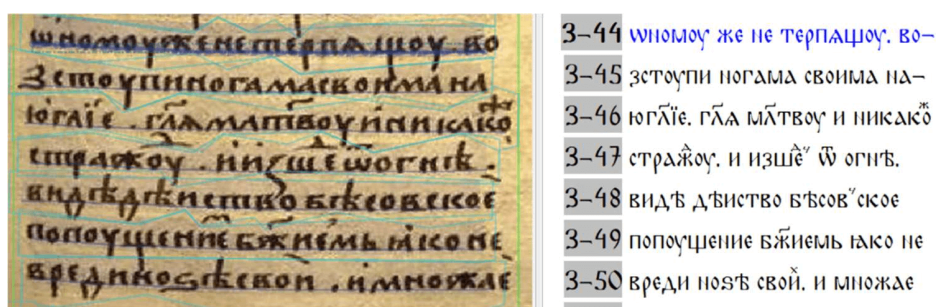 ѡномоуженетерпѧщоу. во
зстоупиногамасвоимана
югл҃їе. гл҃ѧ мл҃твоу и никакѡ̑ж
стражоу. и изшеⷣ ѿ огнѣ.
видѣдѣиствобѣсовское
попоущение бж҃иемь ꙗко не
вреди ноѕѣ свои. и множае
3–44 ѡномоу же не терпѧщоу. во–
3–45 зстоупи ногама своима на–
3–46 югл҃їе. гл҃ѧ мл҃твоу и никакоⷤ
3–47 стражⷣоу. и изшеⷣ ѿ огнѣ.
3–48 видѣ дѣиство бѣсовъское
3–49 попоущение бж҃иемь ꙗко не
3–50 вреди ноѕѣ свойⷯ. и множае